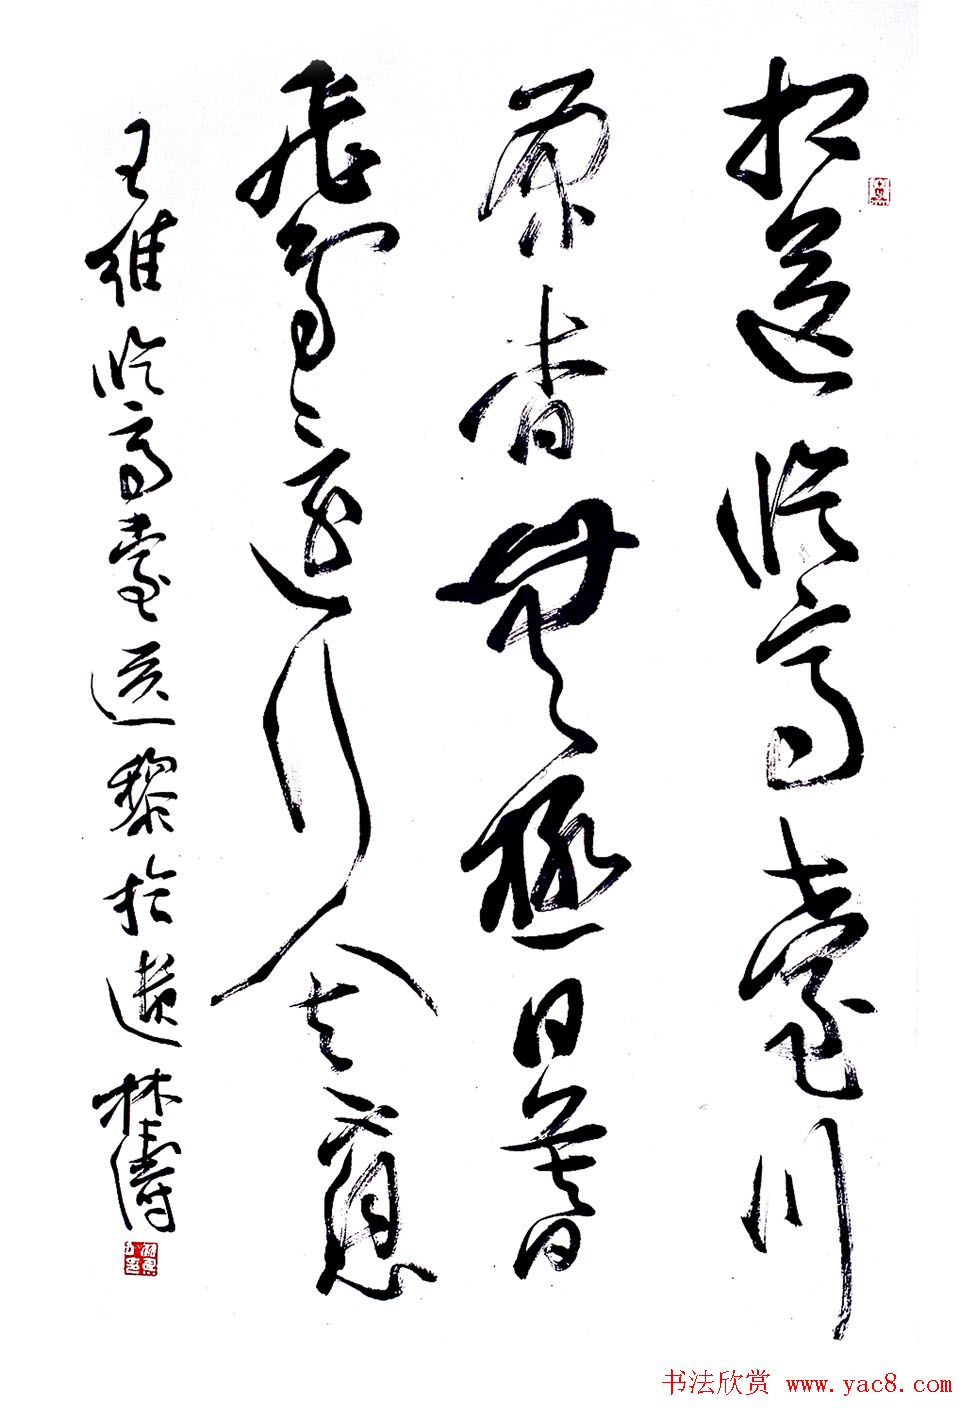 相送臨高臺川
原杳無極日暮
飛鳥還行人去不息
王維臨高臺送黎拾遺 林濤
书法欣赏 www.yac8.com